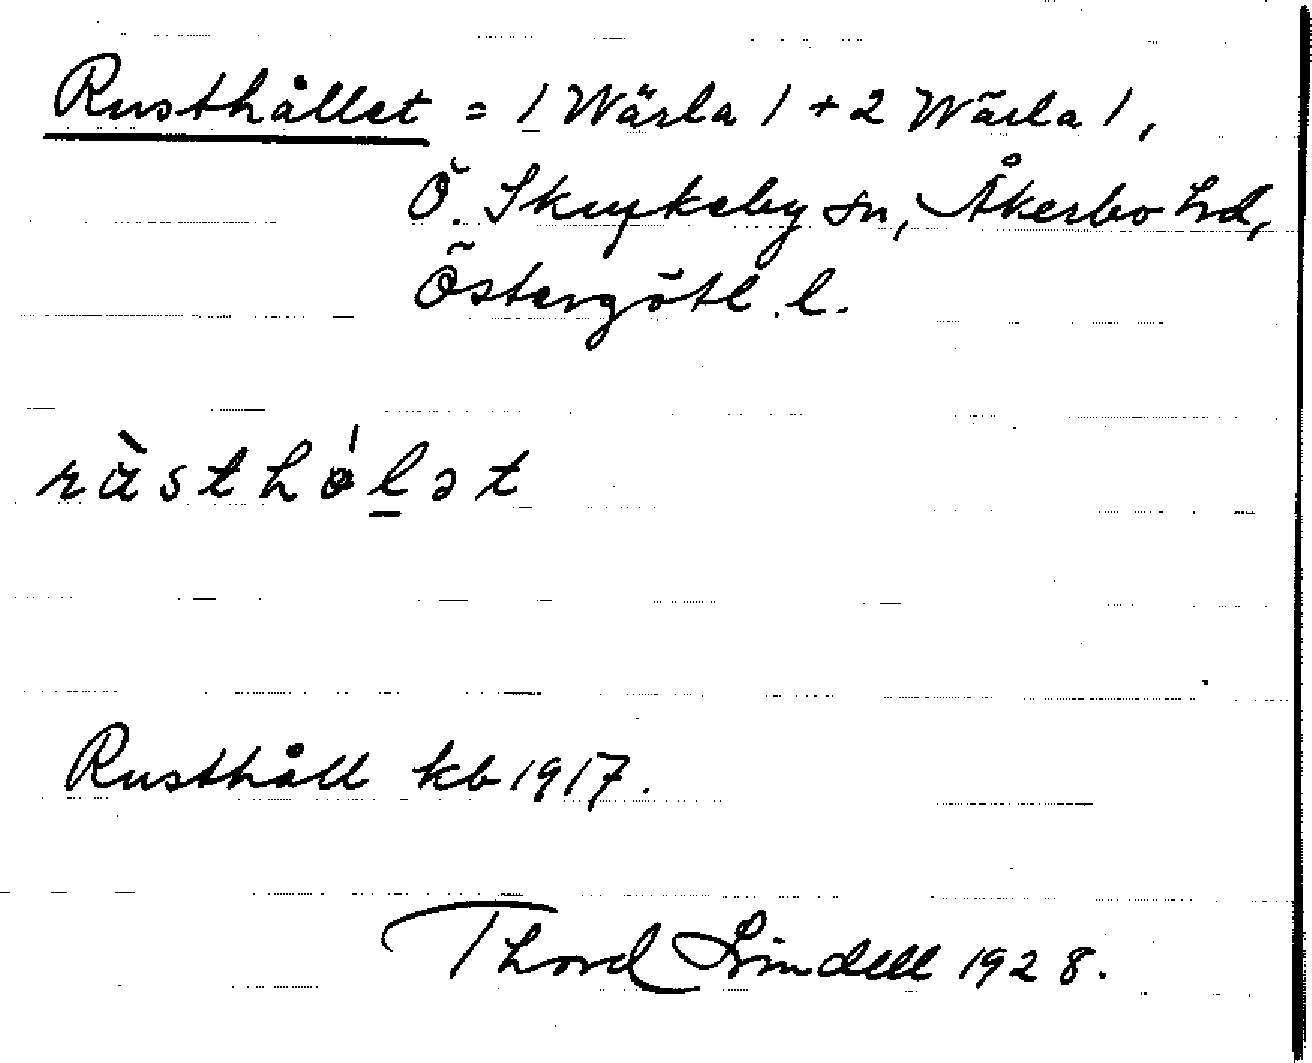 Rusthållet = 1 Wärla 1 + 2 Wärla 1,
Ö. Skrukeby sn, Åkerbo hd,
Östergötl. l.
ràsthó̱lət
Rusthåll kb 1917.
Thord Lindell 1928.